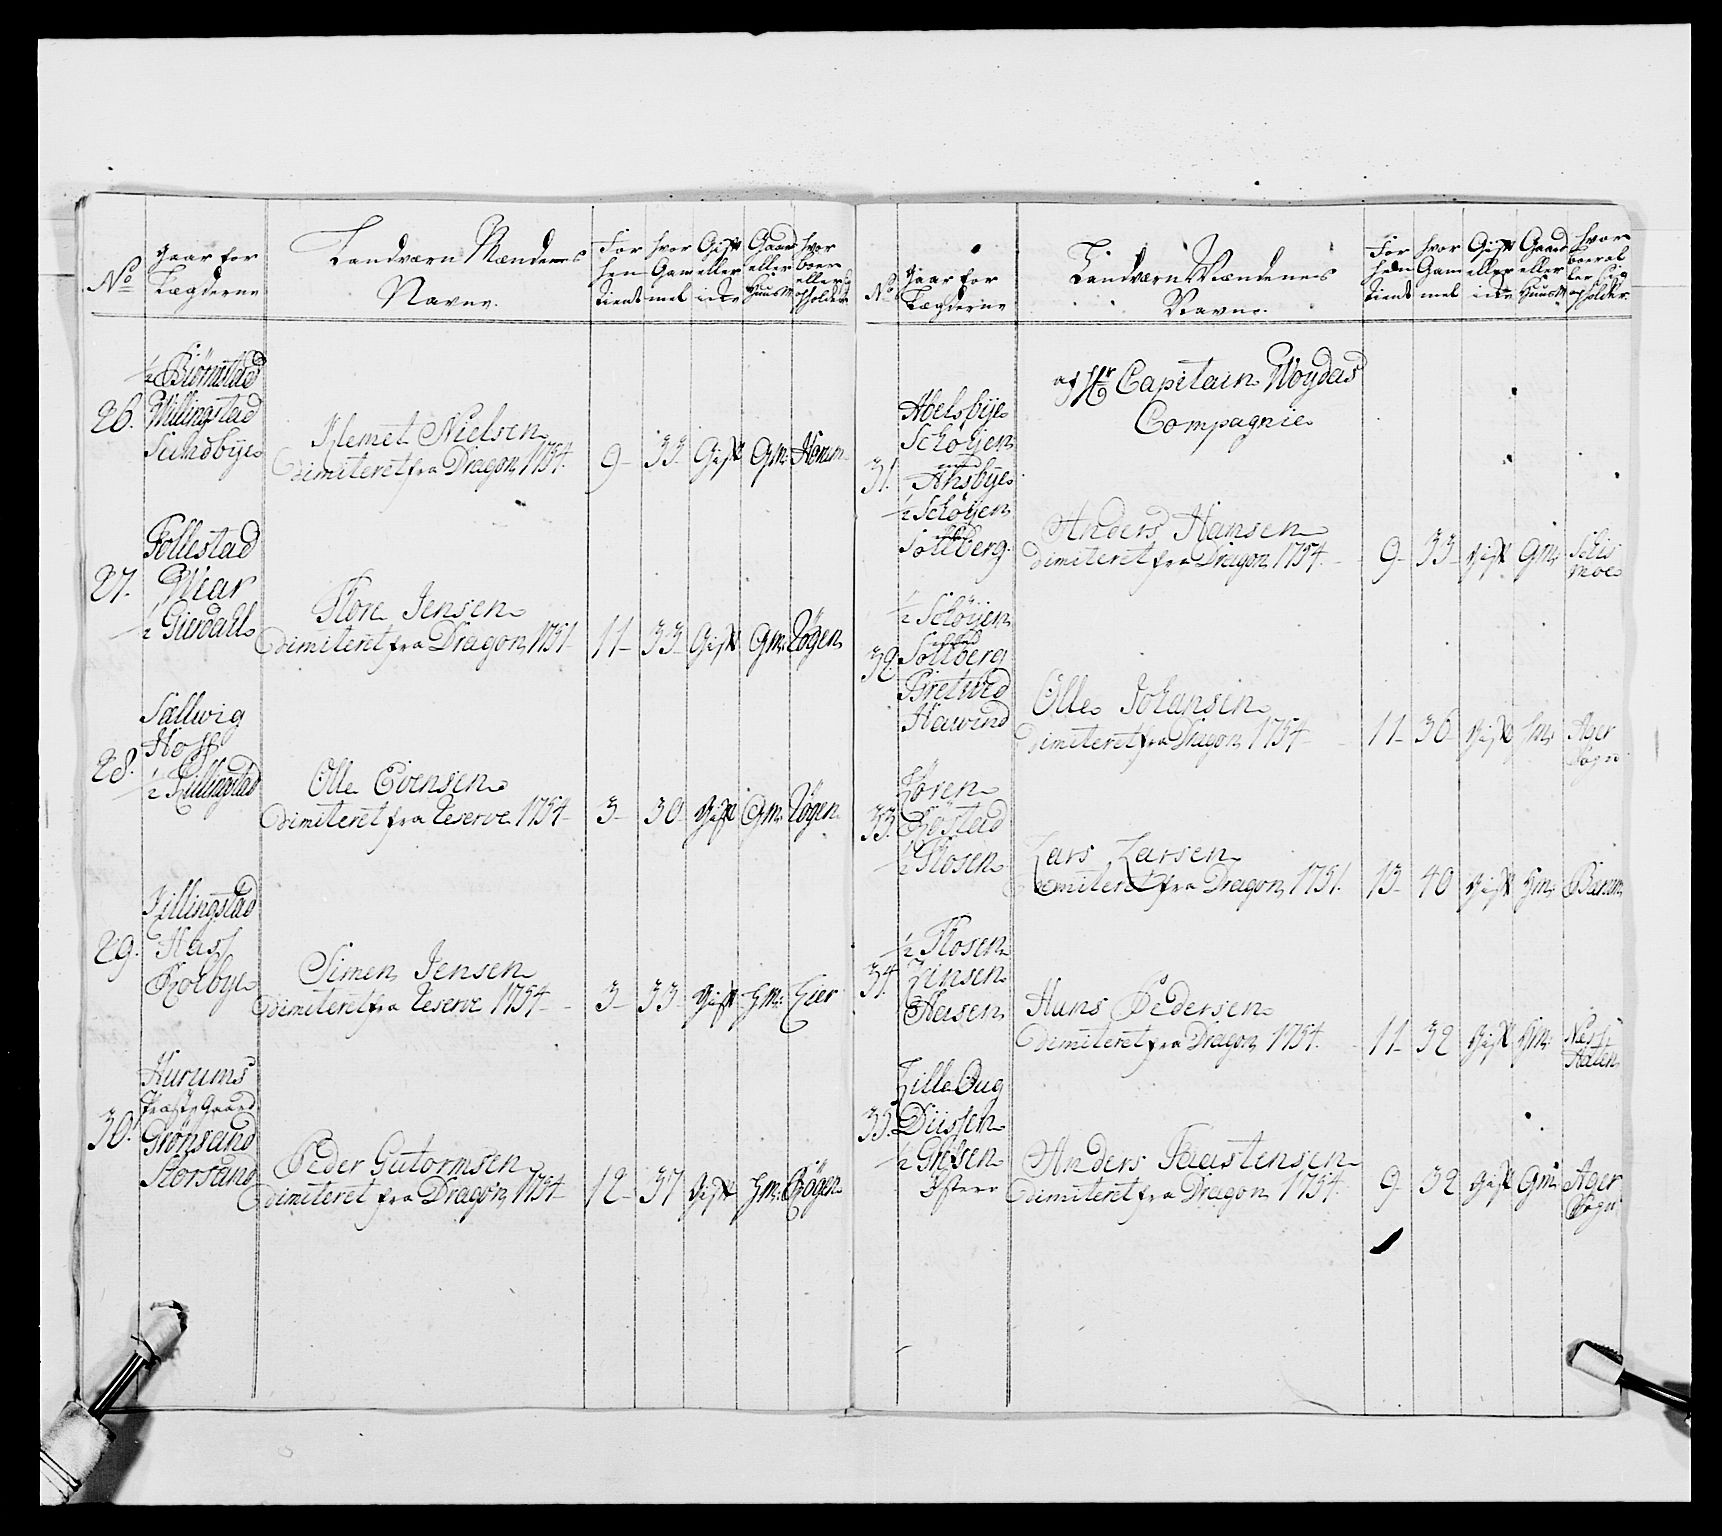 No
Gaar for
Lægderne
Landværn Mændenes
Navne.
For
hen
tient
hvor
Gam
mel
Gift
eller
icke
Gaard
eller
Huusm
hvor
boer
eller
opholder
1/2 Biörnstad
26. Willingstad
Sundbÿe
Klemet Nielsen
dimiteret fra Dragon 1754. 9 33 Gift Gm: Hurum
Follestad
27. Wiar
1/2 Gierdahl
Tore Jensen
dimiteret fra Dragon 1751 11 33 Gift Gm: Rögen
Sællwig
Hoff
28. 1/2 Killingstad
Olle Evensen
dimiteret fra Reserve 1754 3 30 Gift Gm: Rögen
Killingstad
29. Hasf
Rolbye
Simen Jensen
dimiteret fra Reserve 1754 3 33 Gift Hm: Lier
Hurums
Præste Gaard
30. Grönsand
Storsand
Peder Gutormsen
dimiteret fra Dragon 1754 12 37 Gift Hm: Rögen
No
Gaar for
Lægderne
Landværn Mændenes
Navne.
For
hen
tient
hvor
Gam
mel
Gift
eller
icke
Gaard
eller
Huusm
hvor
boer el
ler sig
opholder.
af Hr Capitain Woydas
Compagnie
Abelsbÿe
Schoÿen
31. Ahsbÿe
1/2 Schöÿen
Sollberg
Anders Hansen
dimiteret fra Dragon 1754. 9 33 Gift Gm:
1/2 Schöÿen
32. Sollberg
Bretwed
Hawind
Olle Johansen
dimiteret fra Dragon 1754 11 36 Gift Hm Ager
Sogn
Lören
33. Röstad
1/2 Tlosen
Lars Larsen
dimiteret fra Dragon 1751. 13 40 Gift Hm Bærum
1/2 Tlosen
34. Linsen
Hasen
Hans Pedersen
dimiteret fra Dragon 1754. 11 32 Gift Hm:
Lille Oug
35. Diisen
1/2 Grefsen
Öster
Anders Taastensen
dimiteret fra Dragon 1754. 9 32 Gift Gm Ager
Sogn